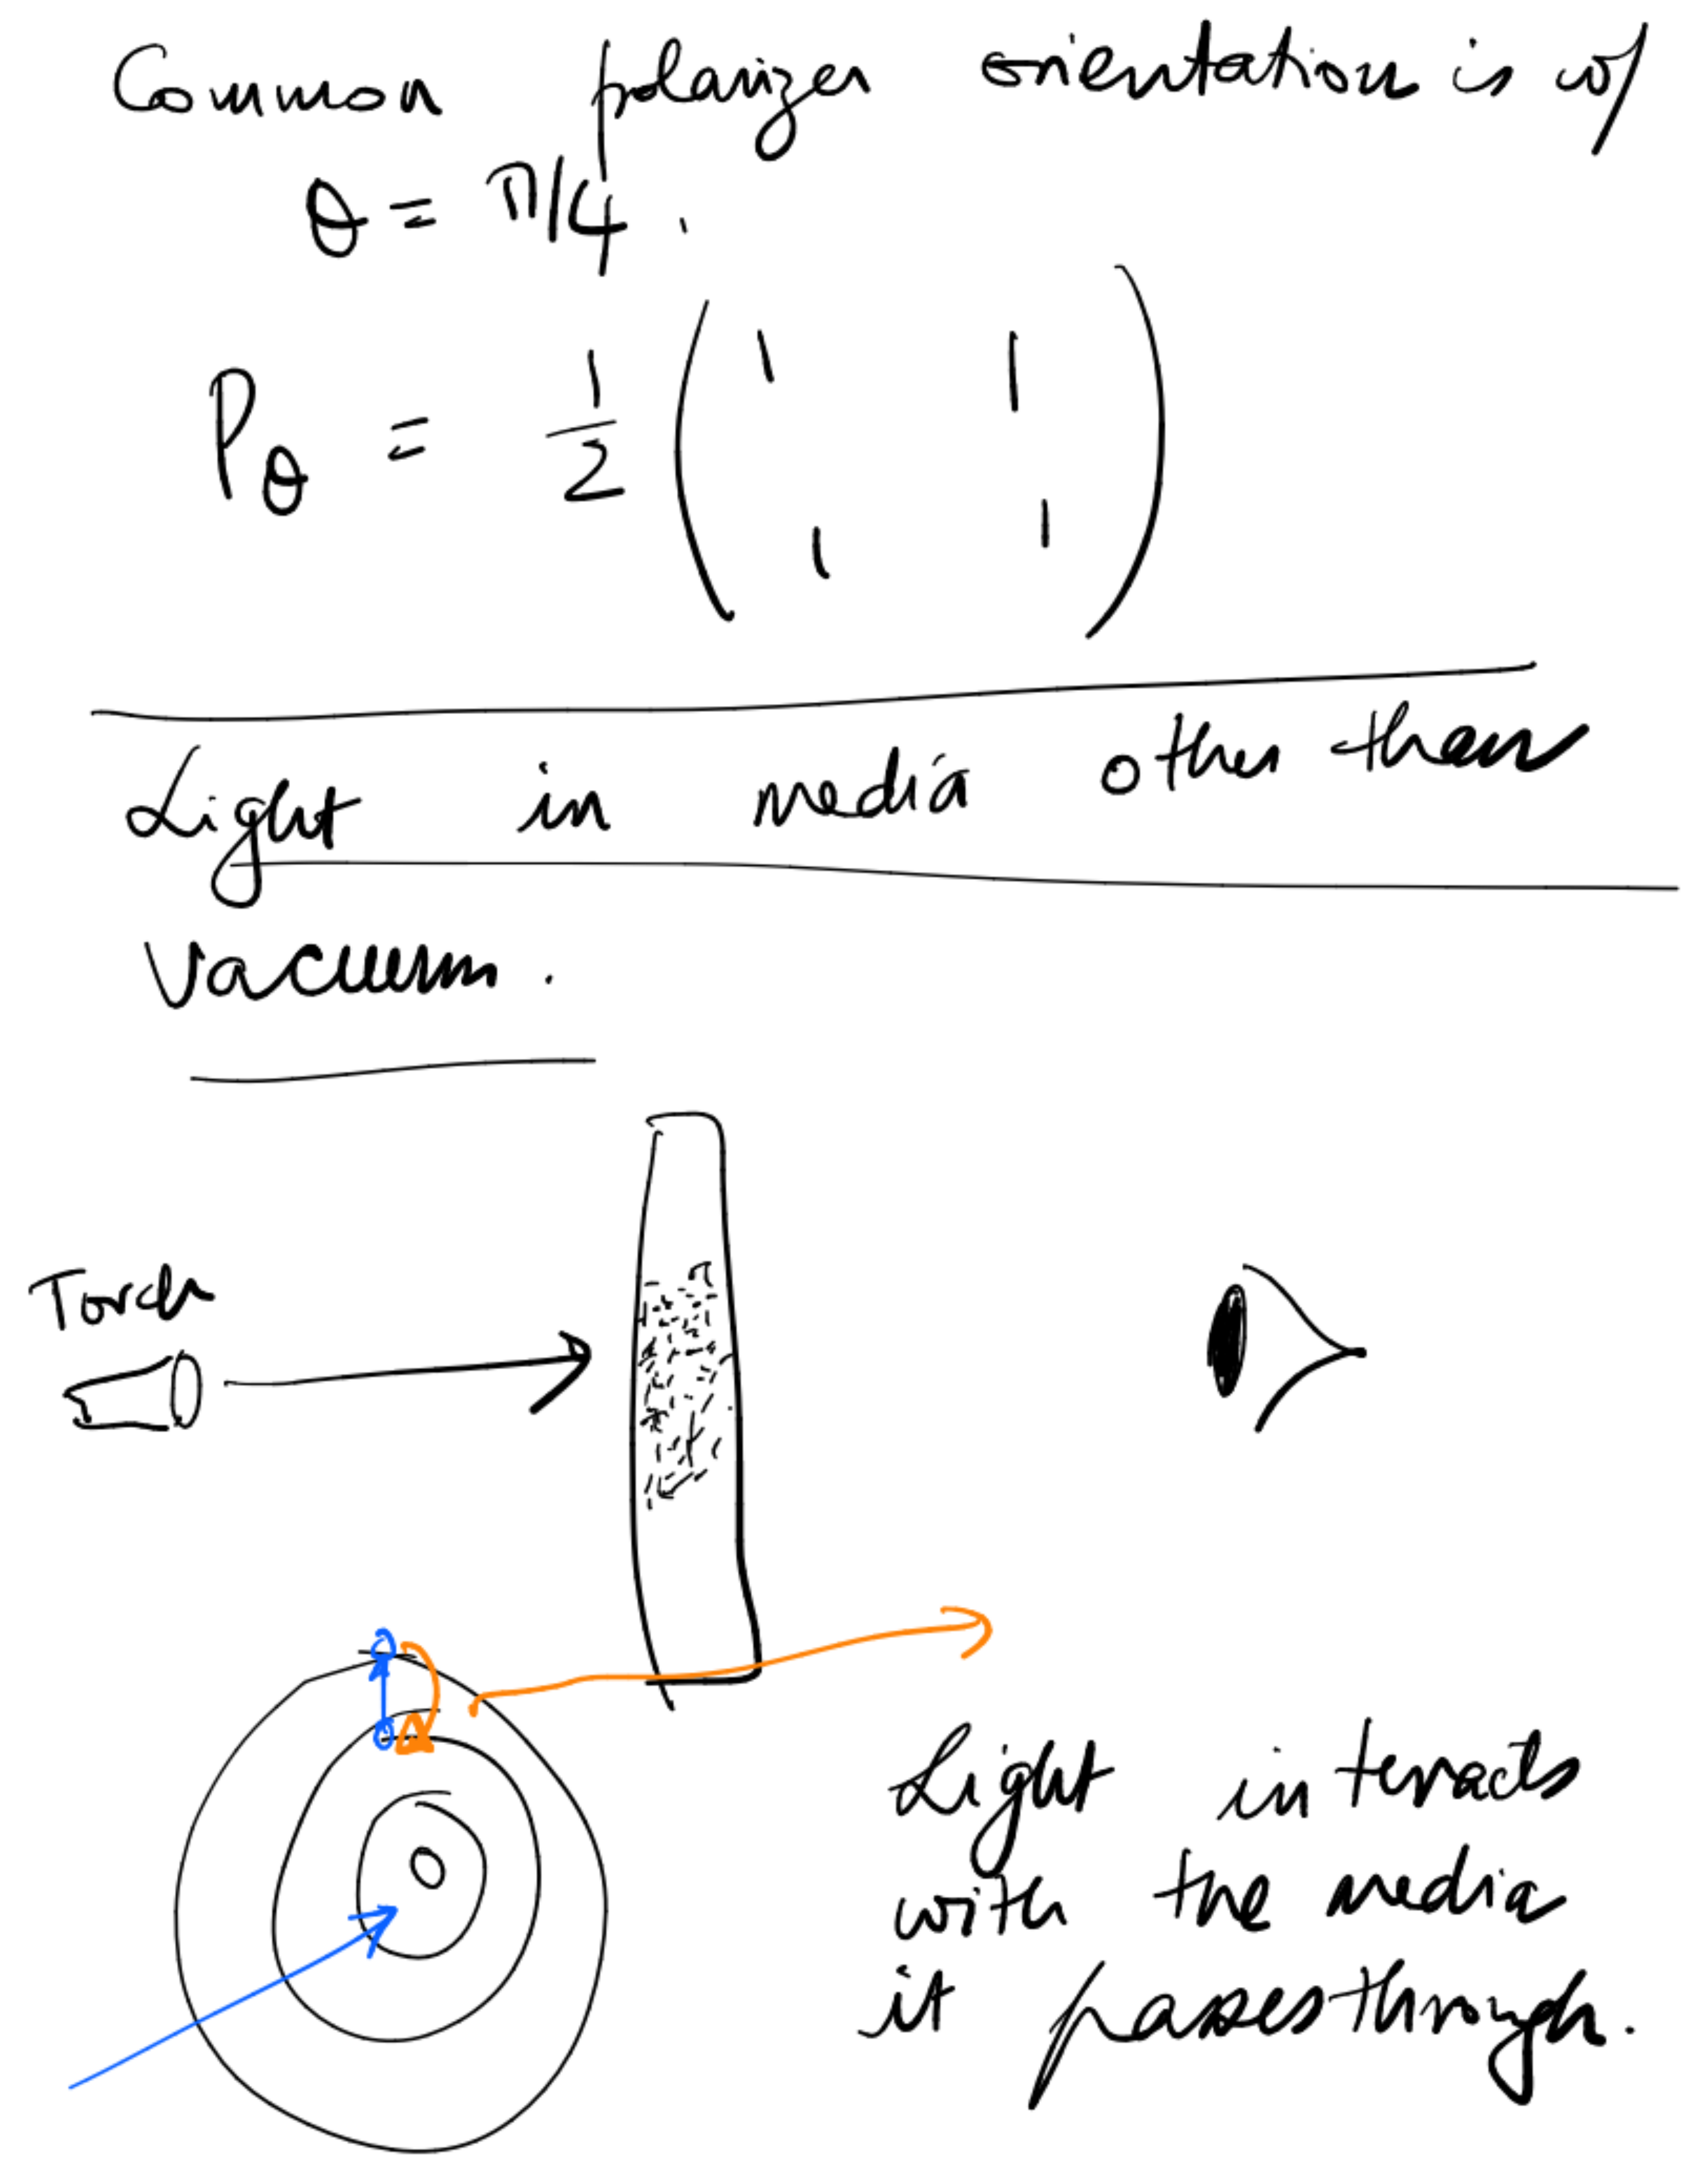 Common polarizer orientation is w/
θ = π/4 .
P_θ = 1/2 ( 1 1
1 1 )
Light in media other than
vacuum .
Torch
Light interacts
with the media
it passes through.